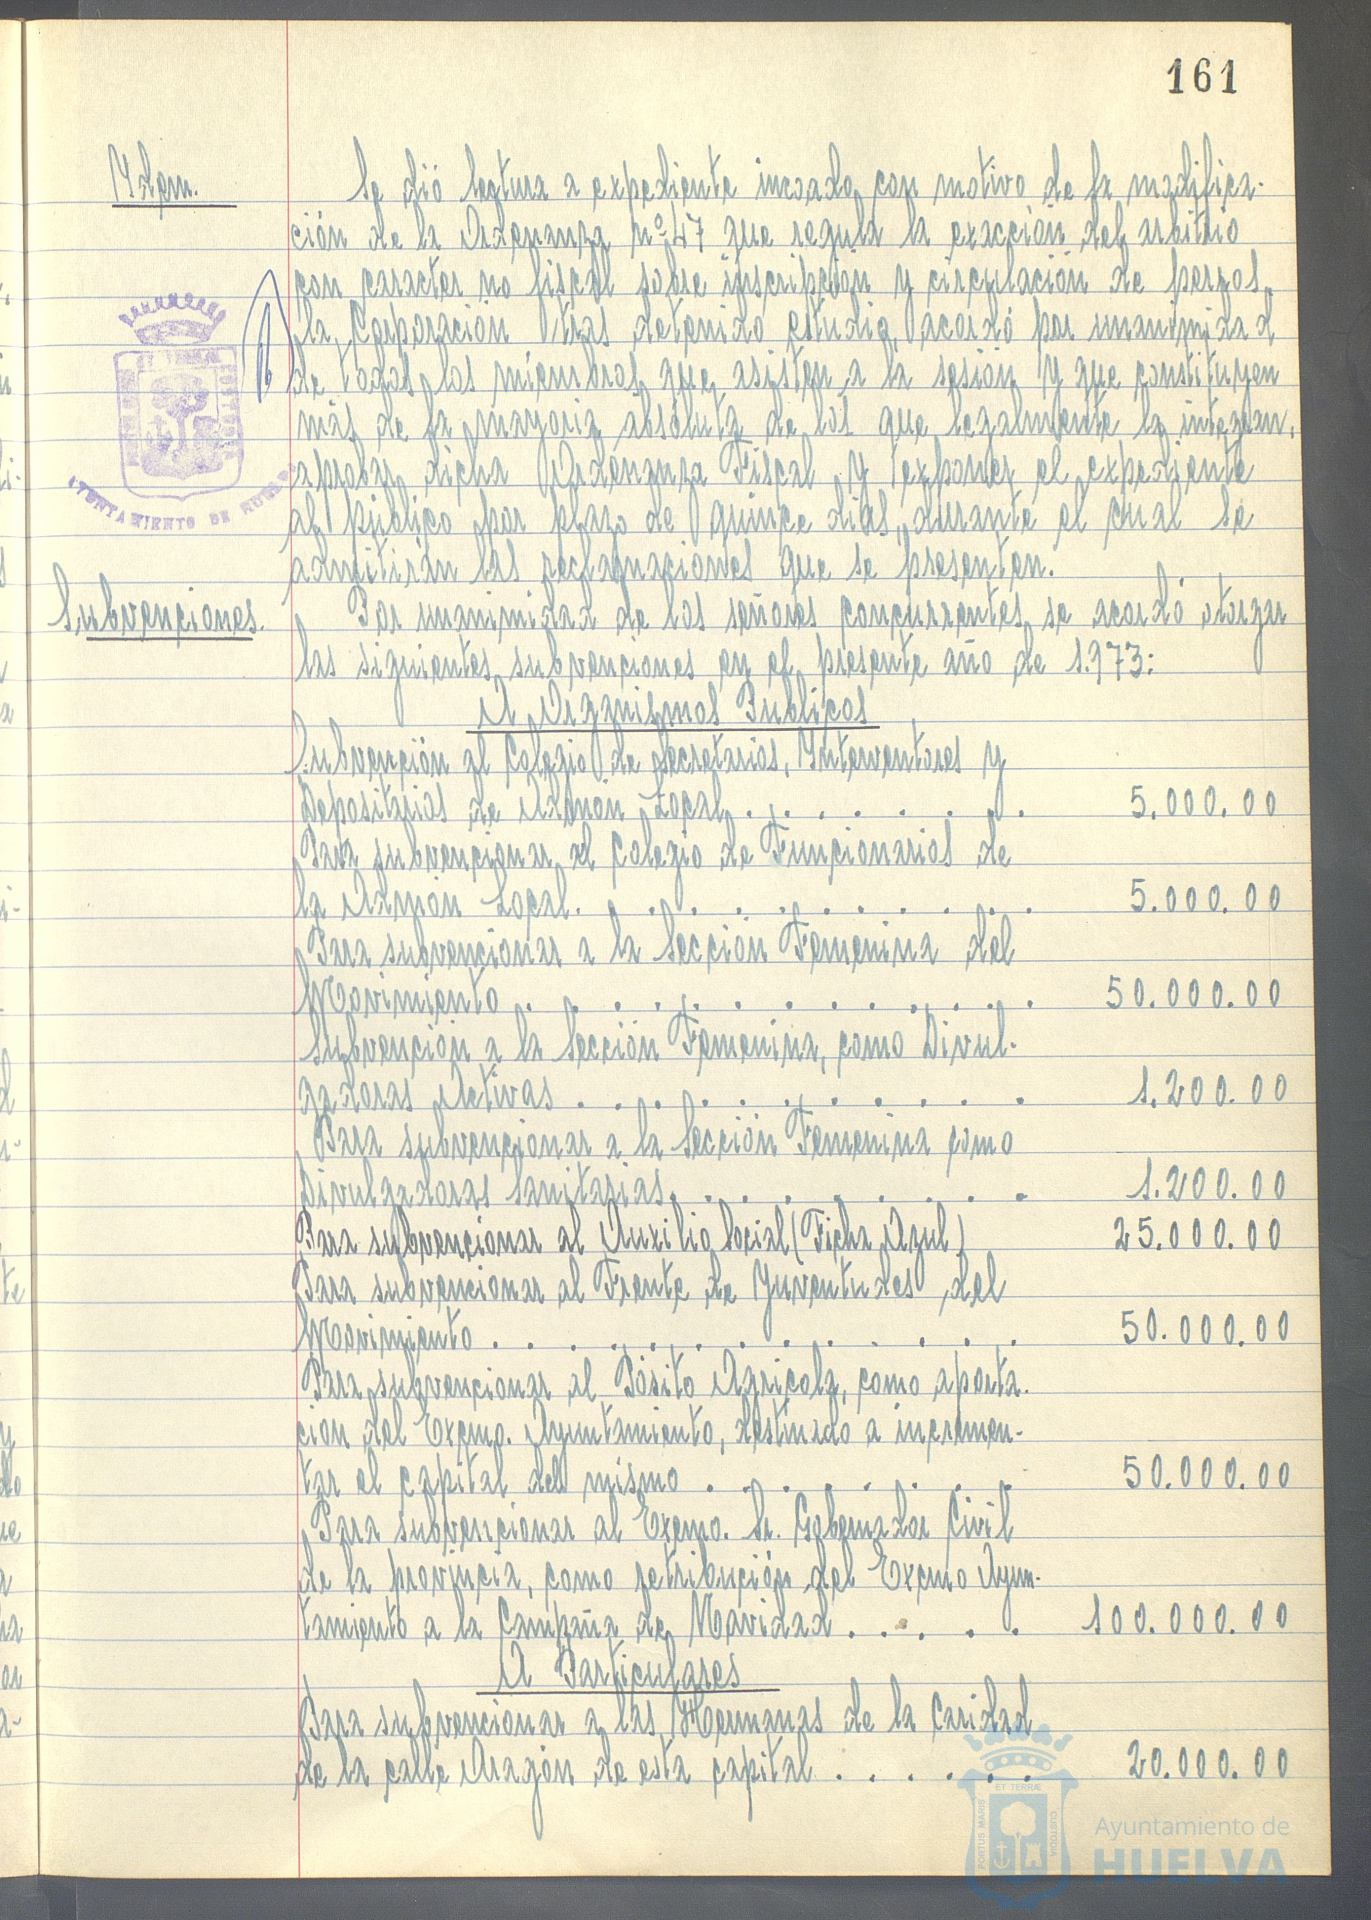 161
Ydem.
Se dió lectura a expediente incoado con motivo de la modifica-
ción de la Ordenanza nº 47 que regula la exacción del arbitrio
con caracter no fiscal sobre inscripción y circulación de perros,
la Corporación tras detenido estudio, acordó por unanimidad
de todos los miembros que asisten a la sesión y que constituyen
más de la mayoria absoluta de los que legalmente la integran,
aprobar dicha Ordenanza Fiscal y exponer el expediente
al público por plazo de quince dias, durante el cual se
admitirán las reclamaciones que se presenten.
AYUNTAMIENTO DE HUELVA
Subvenciones.
Por unanimidad de los señores concurrentes se acordó otorgar
las siguientes subvenciones en el presente año de 1.973:
A Organismos Publicos
Subvención al Colegio de Secretarios, Ynterventores y
Depositarios de Admón Local. . . . . . . . 5.000.00
Para subvencionar al Colegio de Funcionarios de
la Admón Local. . . . . . . . . . . 5.000.00
Para subvencionar a la Sección Femenina del
Movimiento . . . . . . . . . . . . 50.000.00
Subvención a la Sección Femenina, como Divul-
gadoras Activas . . . . . . . . . . . 1.200.00
Para subvencionar a la Sección Femenina como
Divulgadoras Sanitarias. . . . . . . . . 1.200.00
Para subvencionar al Auxilio Social (Ficha Azul) 25.000.00
Para subvencionar al Frente de Yuventudes del
Movimiento . . . . . . . . . . . . . 50.000.00
Para subvencionar al Pósito Agricola, como aporta-
cion del Excmo. Ayuntamiento, destinado a incremen-
tar el capital del mismo . . . . . . . . 50.000.00
Para subvencionar al Excmo. Sr. Gobernador Civil
de la provincia, como retribución del Excmo Ayun-
tamiento a la Campaña de Navidad . . . . . 100.000.00
A Particulares
Para subvencionar a las Hermanas de la Caridad
de la calle Aragón de esta capital . . . . . . 20.000.00
ET TERRÆ
PORTUS MARIS
CUSTODIA
Ayuntamiento de
HUELVA